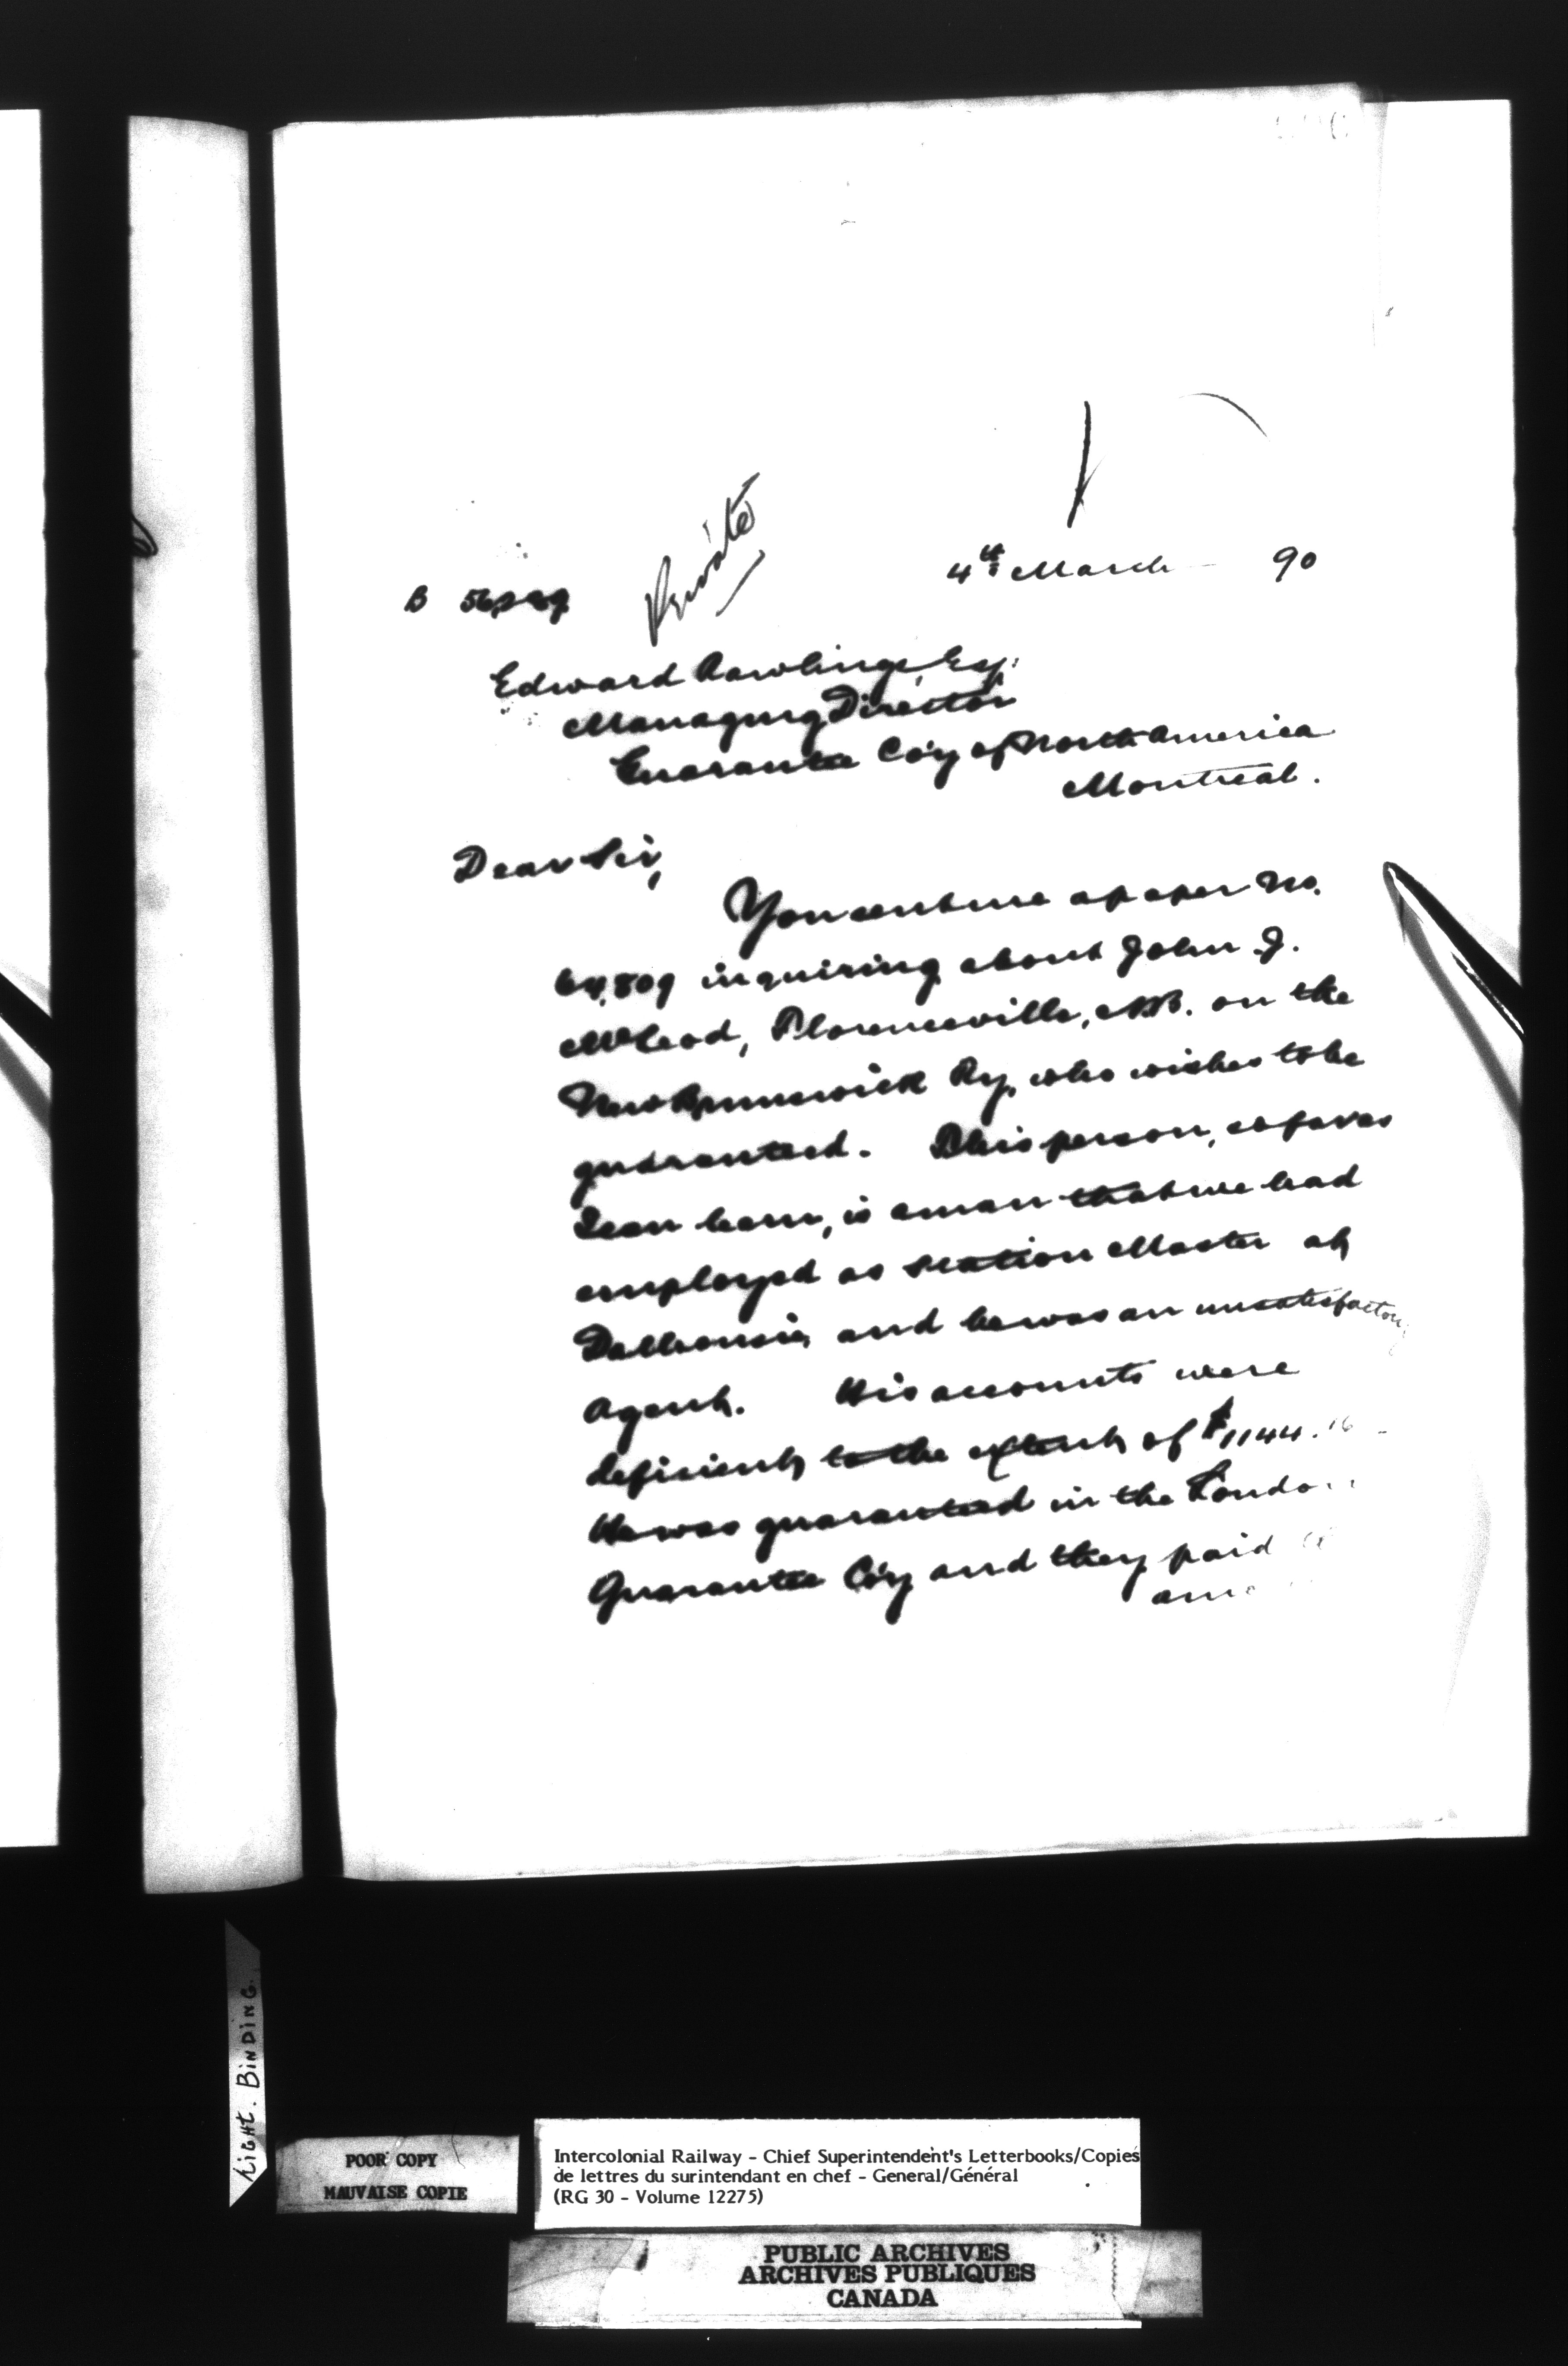 4th March 90
Private
B
Edward Rawlings, Esq:
Managing Director
Guarantee Co'y of North America
Montreal.
Dear Sir,
You sent me a paper No.
64,809 inquiring about John J.
McLeod, Florenceville, N.B. on the
New Brunswick Ry. who wishes to be
guaranteed. This person, as far as
I can learn, is a man that we had
employed as Station Master at
Dalhousie, and he was an unsatisfactory
agent. His accounts were
deficient to the extent of $1144.16
He was guaranteed in the London
Guarantee Co'y and they paid
Tight. Binding.
POOR COPY
MAUVAISE COPIE
Intercolonial Railway - Chief Superintendent's Letterbooks/Copies
de lettres du surintendant en chef - General/Général
(RG 30 - Volume 12275)
PUBLIC ARCHIVES
ARCHIVES PUBLIQUES
CANADA